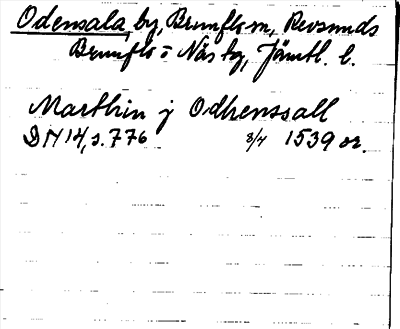 Odensala, by, Brunflo sn, Revsunds
Brunflo o Näs tg, Jämtl. l.
Marthin j Odhenssall
DN 14, s. 776 8/4 1539 or.